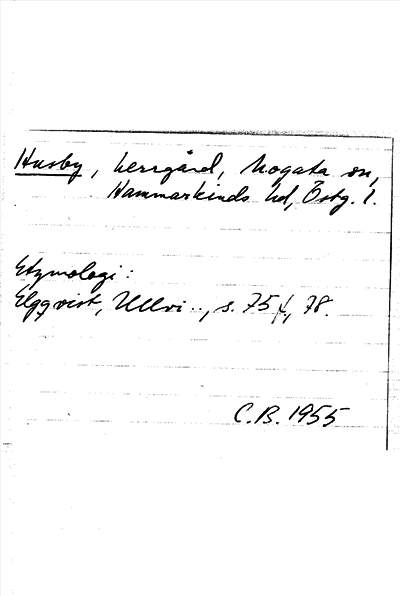 Husby, herrgård, Mogata sn,
Hammarkinds hd, Östg. l.
Etymologi:
Elgqvist, Ullvi.., s. 75 f., 78.
C.B. 1955